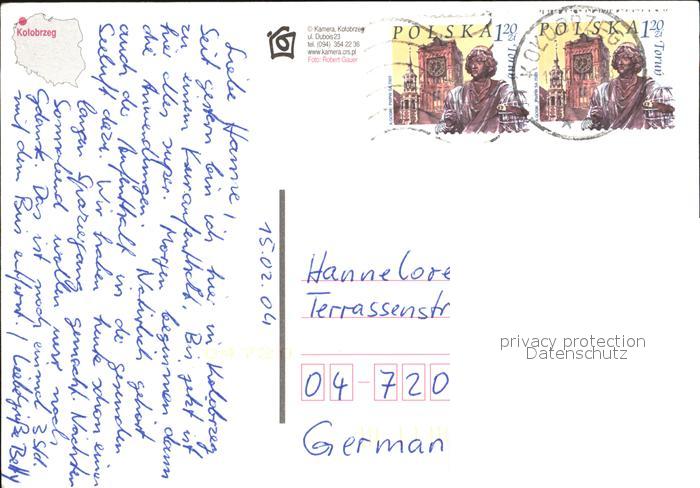 Kołobrzeg
© Kamera, Kołobrzeg
ul. Dubois23
tel. (094) 354 22 36
www.kamera.crs.pl
Foto: Robert Gauer
POLSKA 120 zł
Toruń
POLSKA 120 zł
Toruń
Liebe Hanne!
Seit gestern bin ich hier in Kolobrzeg
zu einem Kuraufenthalt. Bis jetzt ist
hie alles super. Morgen beginnen dann
die Anwendungen. Natürlich gehört
auch der Aufenthalt in der gesunden
Seeluft dazu. Wir haben heute schon einen
langen Spaziergang gemacht. Nächsten
Sonnabend wollen wir noch
Gdansk. Das ist noch einmal 3 Std.
mit dem Bus entfernt. Liebe Grüße Betty
15.02.04
Hannelore
Terrassenstr
04-720
German
privacy protection
Datenschutz